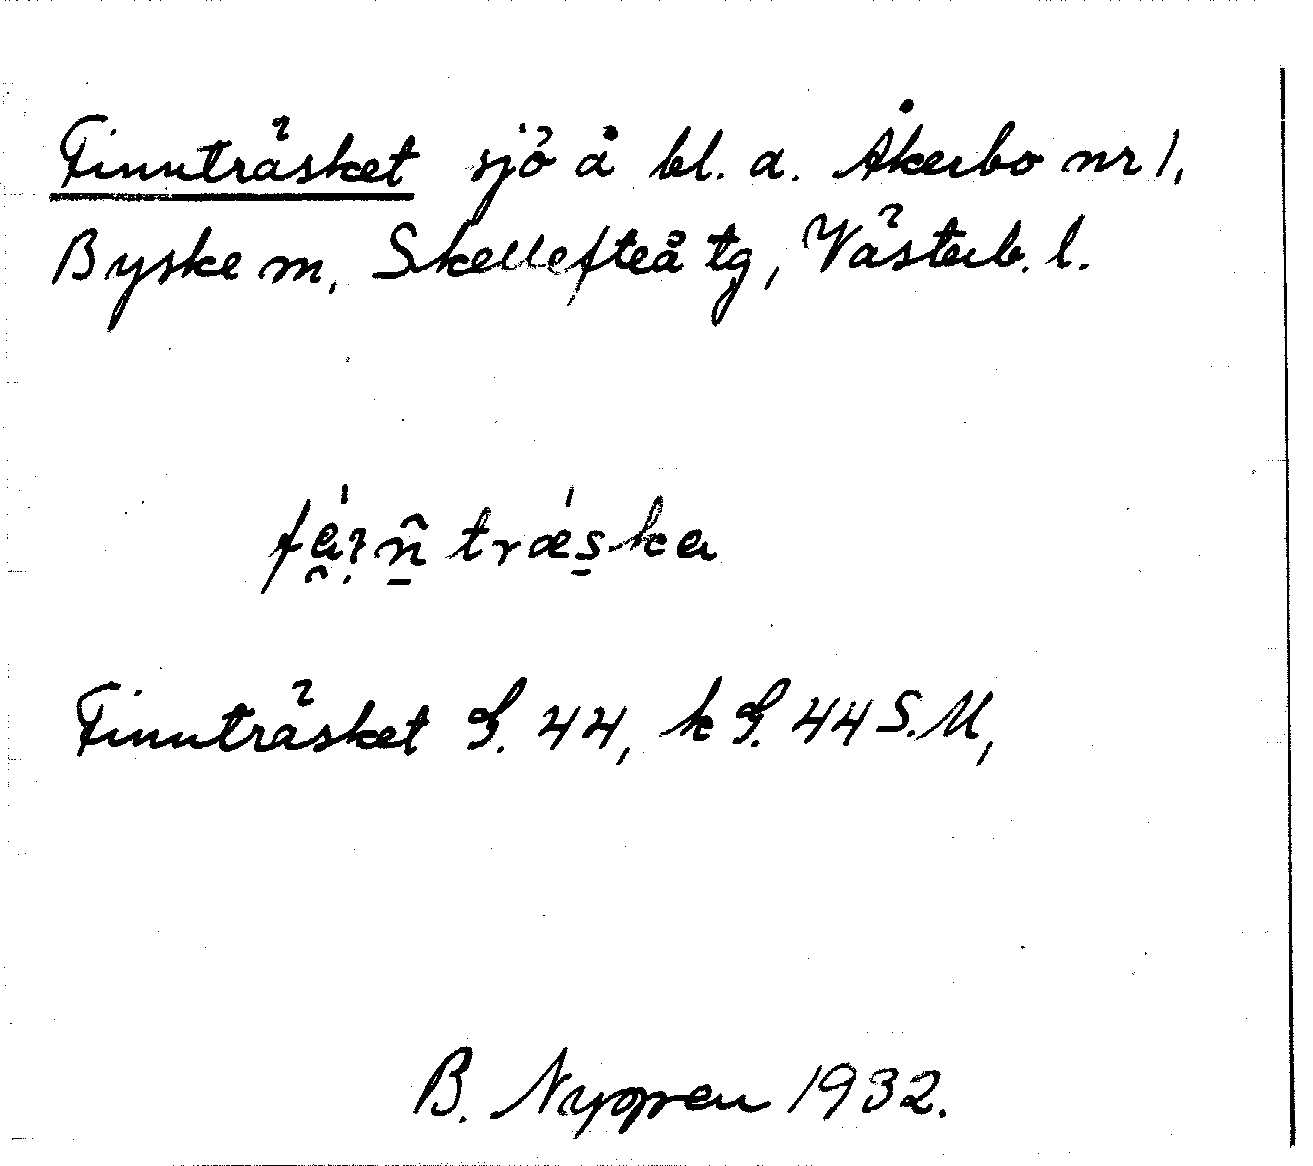 Finnträsket sjö å bl. a. Åkerbo nr 1,
Byske m, Skellefteå tg, Västerb. l.
träska
Finnträsket S. 44, k S. 44 S.M,
B. Nygren 1932.